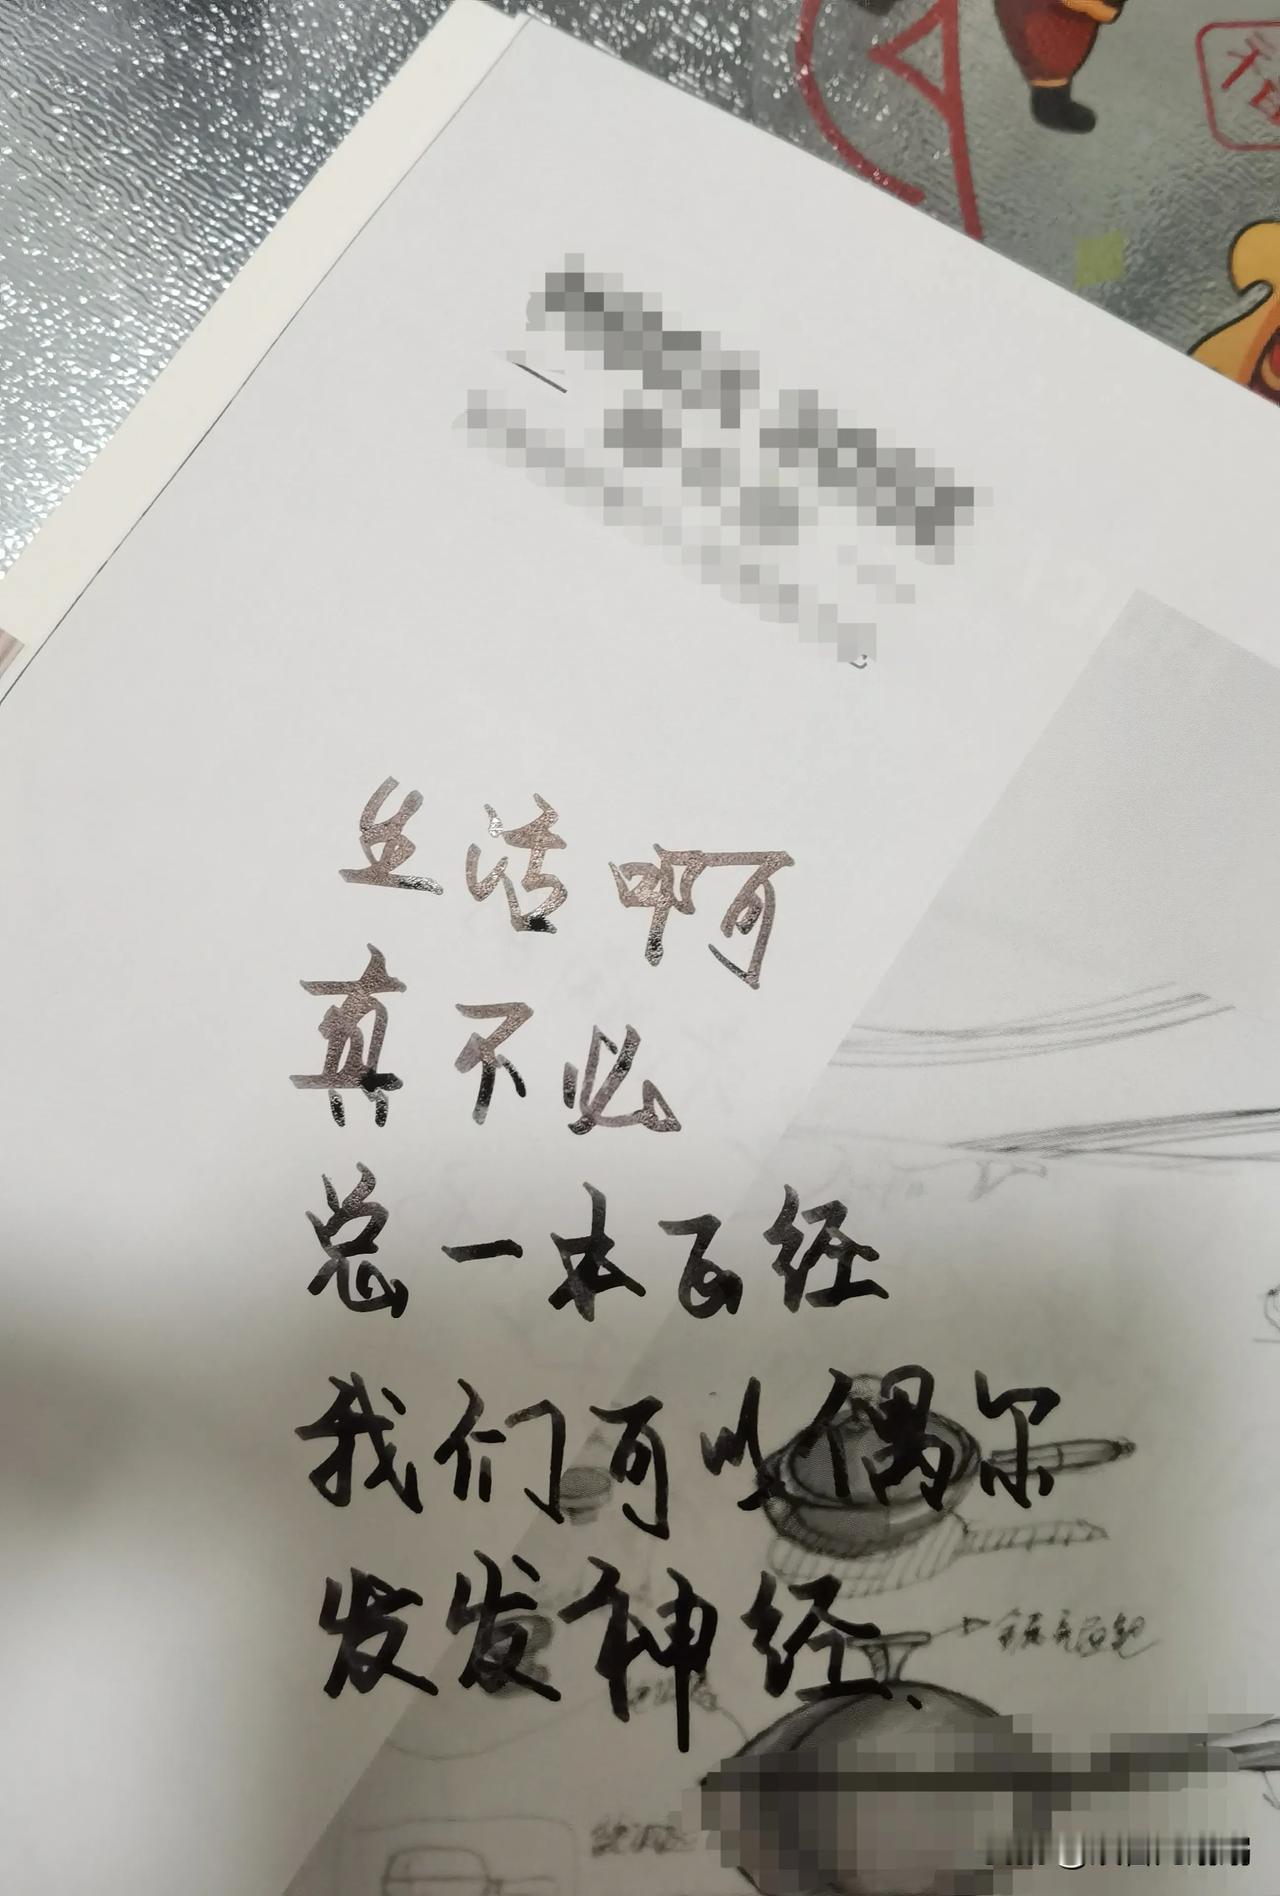 福
生活啊
真不必
总一本正经
我们可以偶尔
发发神经、